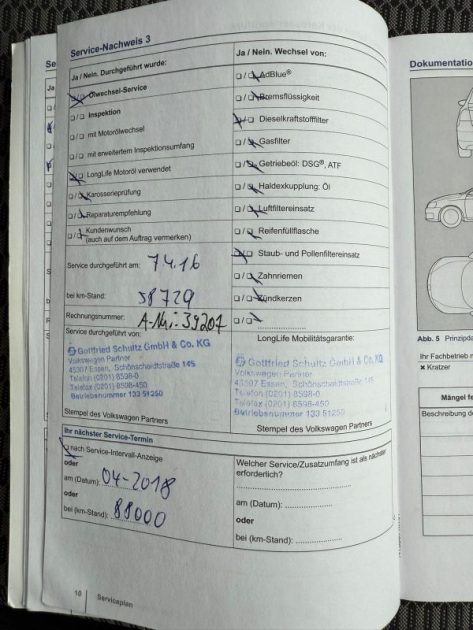 Service-Nachweis 3
Ja / Nein. Durchgeführt wurde:
Ölwechsel-Service
Inspektion
mit Motorölwechsel
mit erweitertem Inspektionsumfang
LongLife Motoröl verwendet
Karosserieprüfung
Reparaturempfehlung
Kundenwunsch
(auch auf dem Auftrag vermerken)
Service durchgeführt am: 7.4.16
bei km-Stand: 58729
Rechnungsnummer: A-Nr.: 39207
Service durchgeführt von:
Gottfried Schultz GmbH & Co. KG
Volkswagen Partner
45307 Essen, Schönscheidtstraße 145
Telefon (0201) 8598-0
Telefax (0201) 8598-450
Betriebsnummer 133 51250
Stempel des Volkswagen Partners
Ja / Nein. Wechsel von:
AdBlue®
Bremsflüssigkeit
Dieselkraftstofffilter
Gasfilter
Getriebeöl: DSG®, ATF
Haldexkupplung: Öl
Luftfiltereinsatz
Reifenfüllflasche
Staub- und Pollenfiltereinsatz
Zahnriemen
Zündkerzen
LongLife Mobilitätsgarantie:
Gottfried Schultz GmbH & Co. KG
Volkswagen Partner
45307 Essen, Schönscheidtstraße 145
Telefon (0201) 8598-0
Telefax (0201) 8598-450
Betriebsnummer 133 51250
Stempel des Volkswagen Partners
Ihr nächster Service-Termin
nach Service-Intervall-Anzeige
oder
am (Datum): 04-2018
oder
bei (km-Stand): 88000
Welcher Service/Zusatzumfang ist als nächster
erforderlich?
am (Datum):
oder
bei (km-Stand):
10 Serviceplan
Dokumentation
Abb. 5 Prinzipda
Ihr Fachbetrieb m
× Kratzer
Mängel fe
Beschreibung de